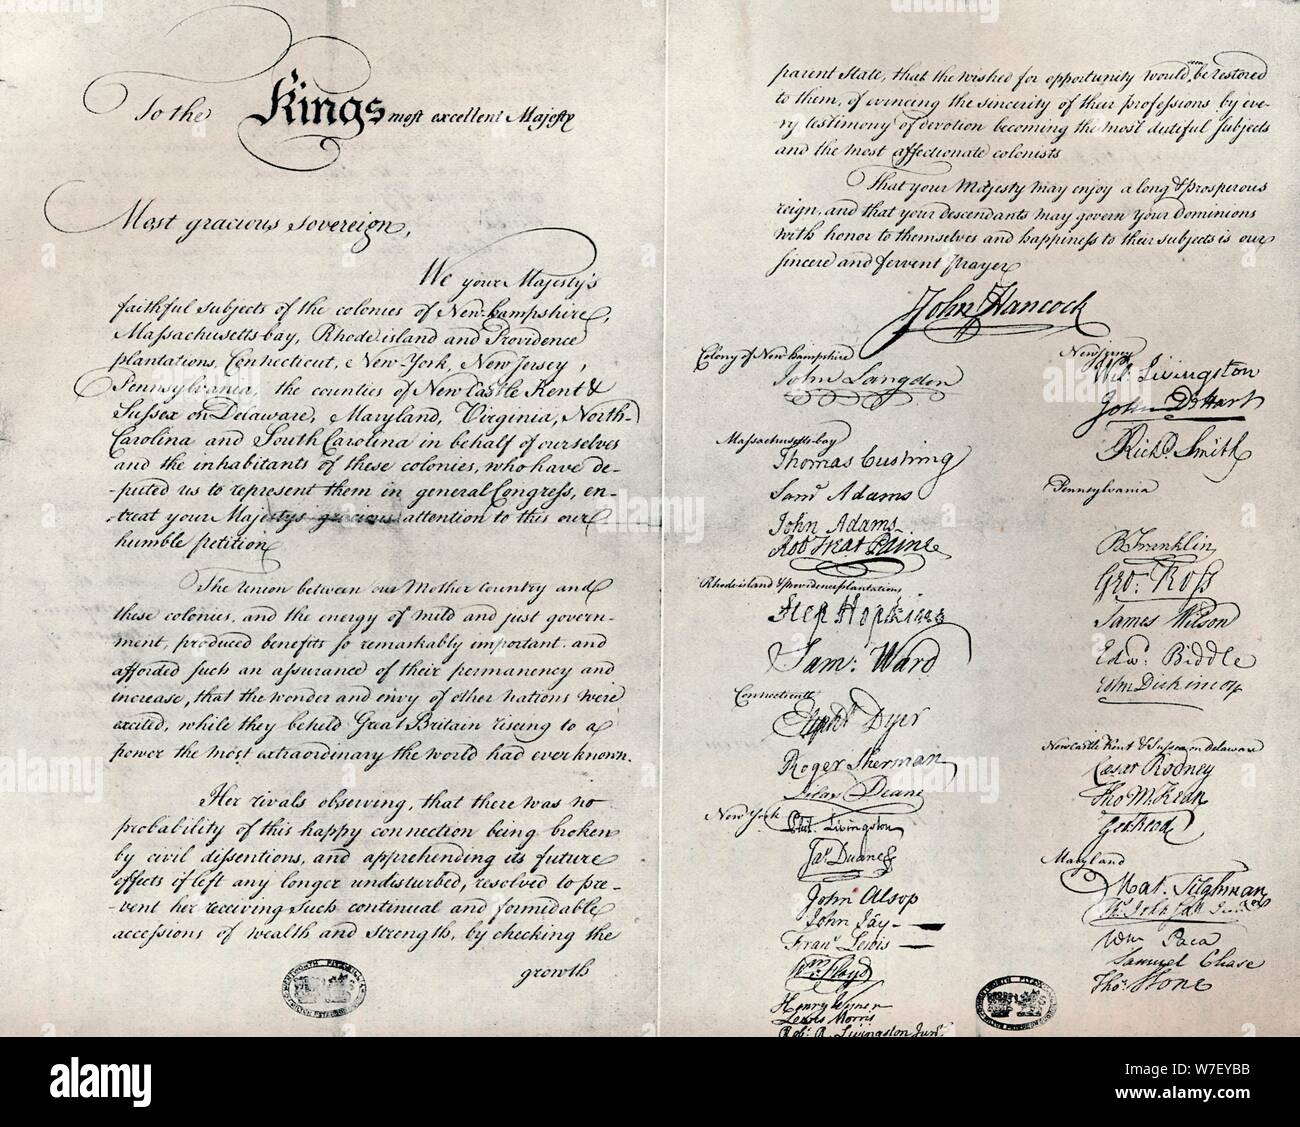 To the Kings most excellent Majesty
Most gracious sovereign,
We your Majesty's
faithful subjects of the colonies of New-hampshire,
Massachusetts-bay, Rhode island and Providence
plantations, Connecticut, New-York, New Jersey,
Pennsylvania, the counties of New Castle Kent &
Sussex on Delaware, Maryland, Virginia, North-
Carolina and South Carolina in behalf of ourselves
and the inhabitants of these colonies, who have de-
-puted us to represent them in general Congress, en-
-treat your Majestys gracious attention to this our
humble petition
The union between our Mother Country and
these colonies, and the energy of mild and just govern-
ment, produced benefits so remarkably important and
afforded such an assurance of their permanency and
increase, that the wonder and envy of other nations were
excited, while they beheld Great Britain rising to a
power the most extraordinary the world had ever known.
Her rivals observing, that there was no
probability of this happy connection being broken
by civil dissentions, and apprehending its future
effects if left any longer undisturbed, resolved to pre-
-vent her receiving such continual and formidable
accessions of wealth and strength, by checking the
growth
parent State, that the wished for opportunity would soon be restored
to them, of evincing the sincerity of their professions by eve-
ry testimony of devotion becoming the most dutiful subjects
and the most affectionate colonists
That your Majesty may enjoy a long & prosperous
reign, and that your descendants may govern your Dominions
with honor to themselves and happiness to their subjects is our
sincere and fervent prayer
John Hancock
Colony of New hampshire
John Langdon
Massachusetts-bay
Thomas Cushing
Saml Adams
John Adams
Robt Treat Paine
Rhode island & providence plantations
Step Hopkins
Sam: Ward
Connecticut
Elipht Dyer
Roger Sherman
Silas Deane
New York
Phil. Livingston
Jas Duane
John Alsop
John Jay
Frans Lewis
Wm Floyd
Henry Wisner
Lewis Morris
Robt R Livingston Junr
New Jersey
Wil: Livingston
John D Hart
Richd Smith
Pennsylvania
B Franklin
Geo: Ross
James Wilson
Edwd Biddle
John Dickinson
Newcastle Kent & Sussex on Delaware
Caesar Rodney
Tho M:Kean
Geo Read
Maryland
Mat. Tilghman
Ths Johnson Junr
Wm Paca
Samuel Chase
Thos Stone
alamy
Image ID: W7EYBB
www.alamy.com